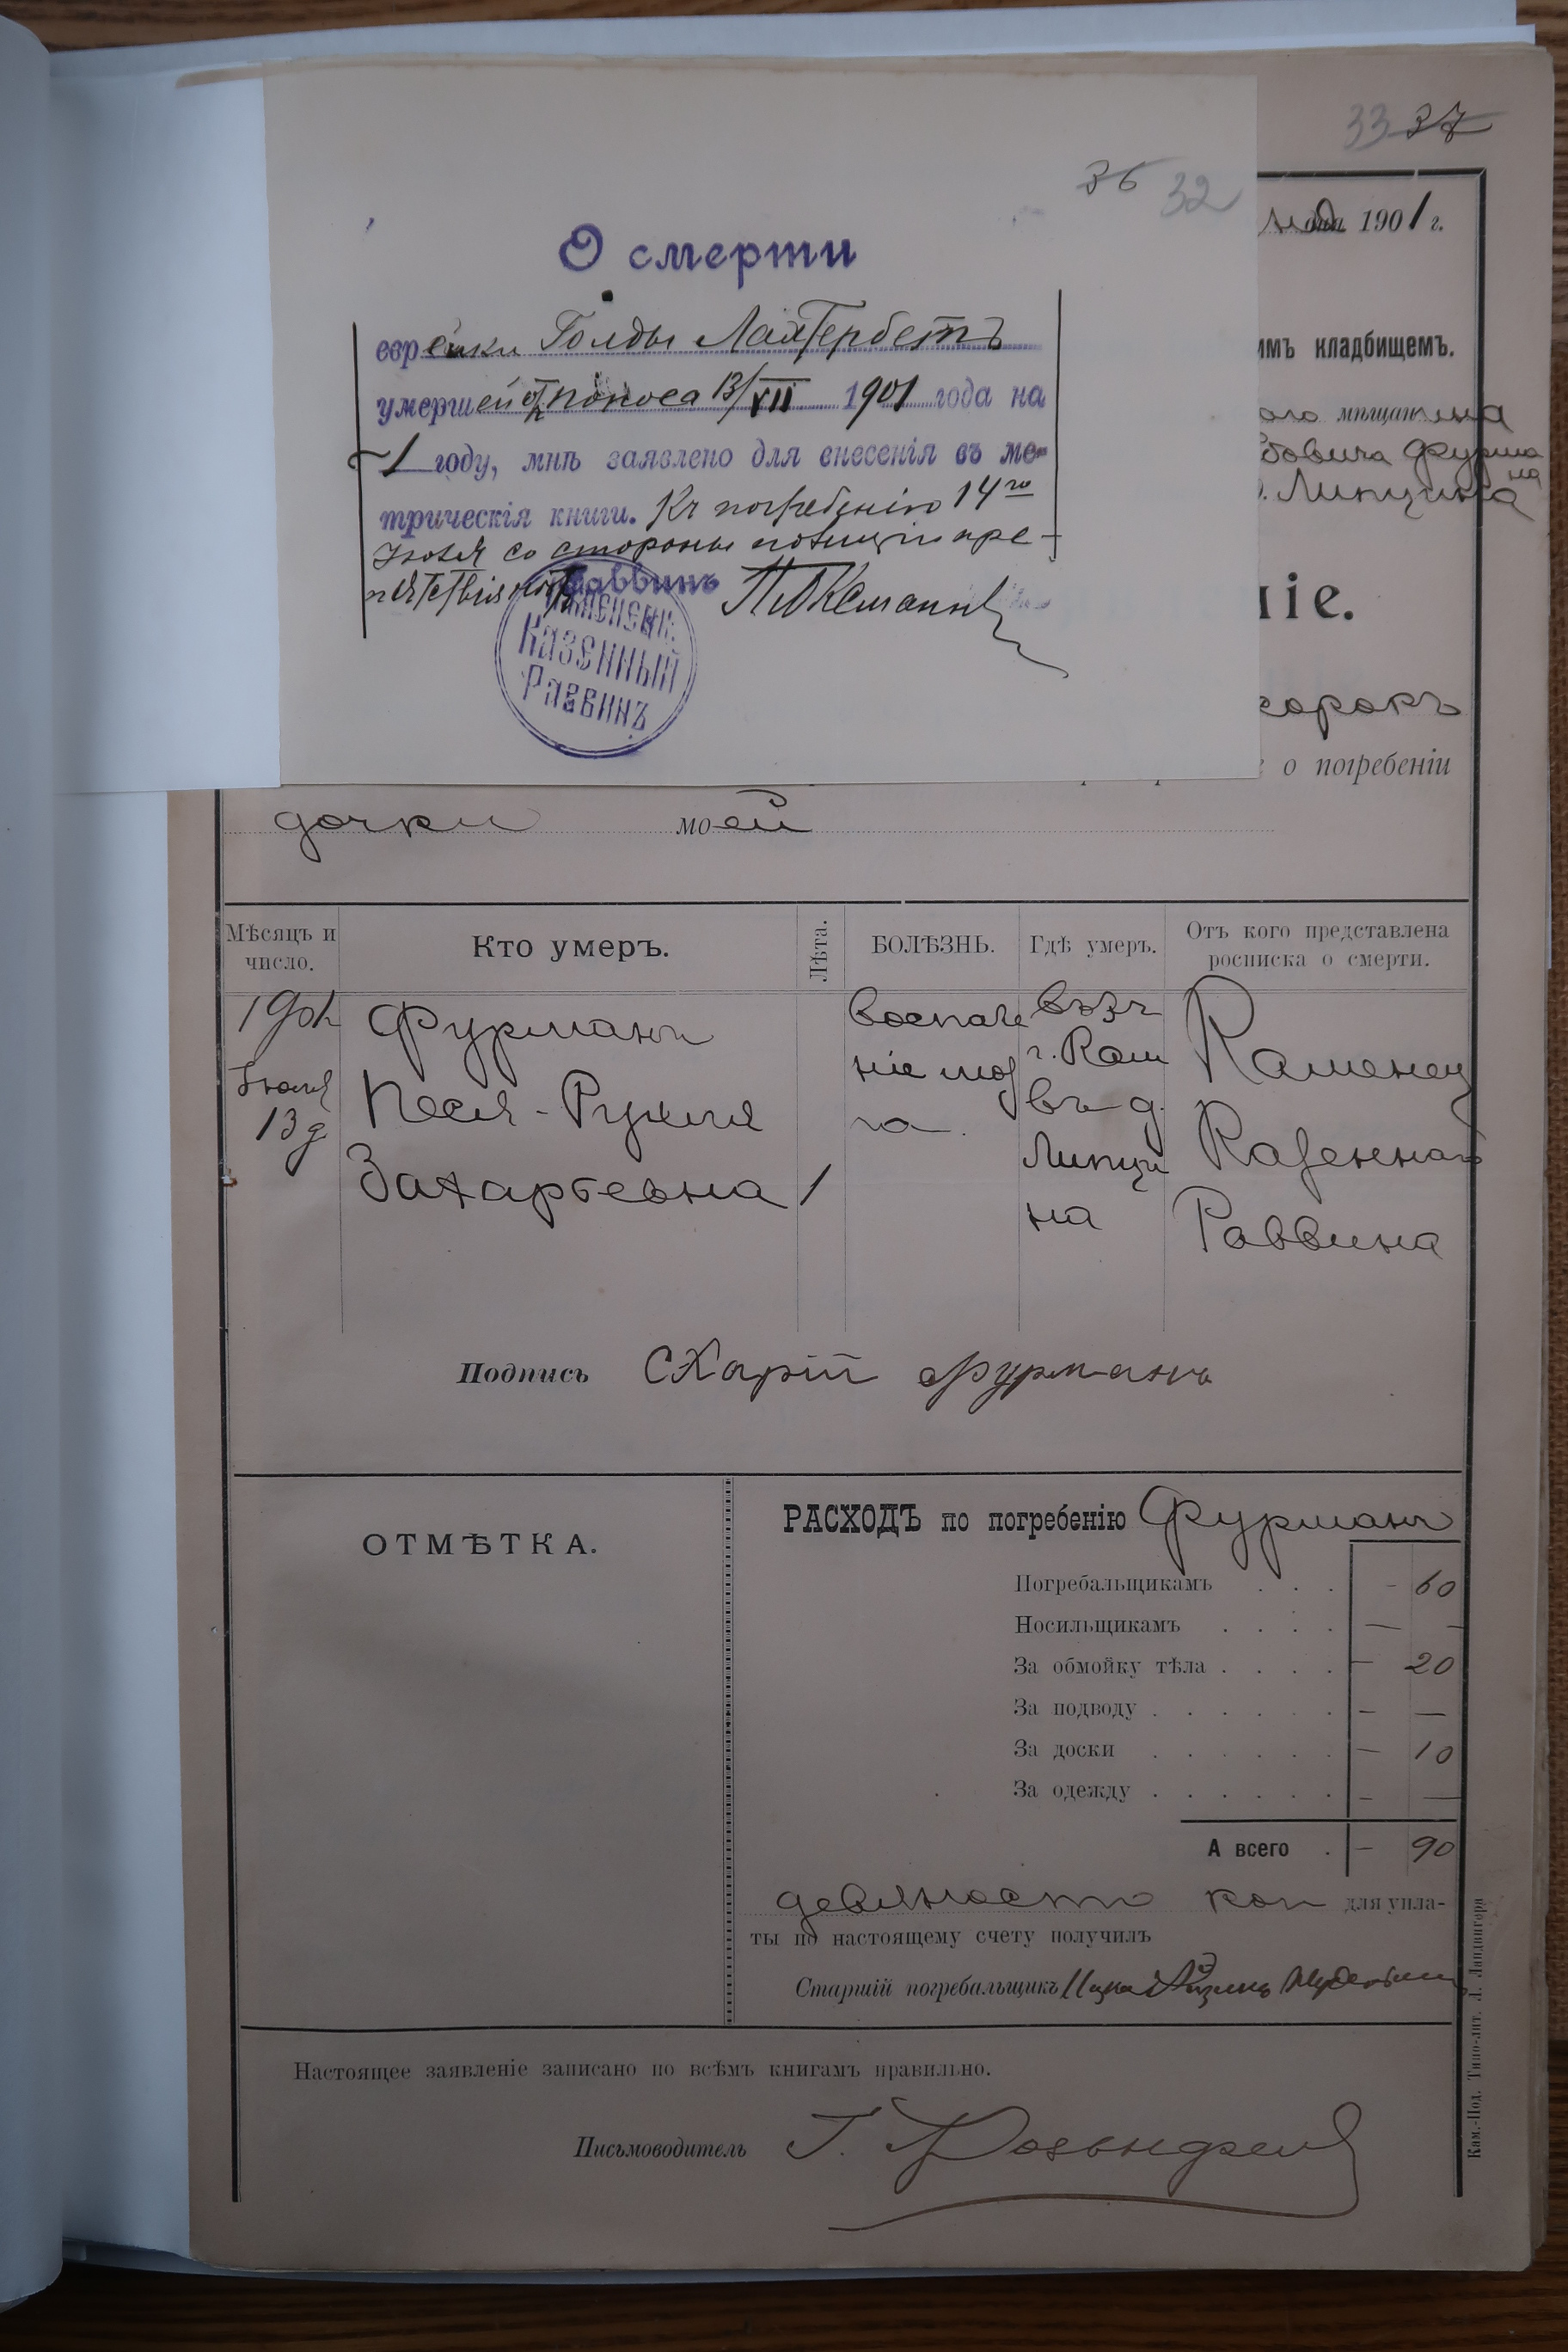 33 37
36 32
190 1 г.
О смерти
еврейки Голды Лахтербетъ
умершей отъ поноса 13/VII 1901 года на
1 году, мнѣ заявлено для внесенія въ ме-
трическія книги. Къ погребенію 14го
Іюля со стороны полиціи пре-
пятствія нѣтъ
Раввинъ
Каменецк.
Казенный
Раввинъ
имъ кладбищемъ.
ого мѣщанина
бовича Фурма
на
д. Липцина
ніе.
сорокъ
о погребеніи
дочки моей
Мѣсяцъ и число.
Кто умеръ.
Лѣта.
БОЛѢЗНЬ.
Гдѣ умеръ.
Отъ кого представлена росписка о смерти.
Іюля
13 д
Фурманъ
Песя-Рухля
Захарьевна
1
Воспале
ніе моз
га.
г. Кам
въ д.
Липци
на
Каменец
Казеннаго
Раввина
Подпись Схарій Фурманъ
ОТМѢТКА.
РАСХОДЪ по погребенію Фурманъ
Погребальщикамъ . . . - 60
Носильщикамъ . . . . — —
За обмойку тѣла . . . . — 20
За подводу . . . . . . — —
За доски . . . . . . — 10
За одежду . . . . . . — —
А всего . — 90
девяносто коп для упла-
ты по настоящему счету получилъ
Старшій погребальщикъ
Настоящее заявленіе записано по всѣмъ книгамъ правильно.
Письмоводитель Г.
Кам.-Под. Типо-лит. Л. Ландвигера